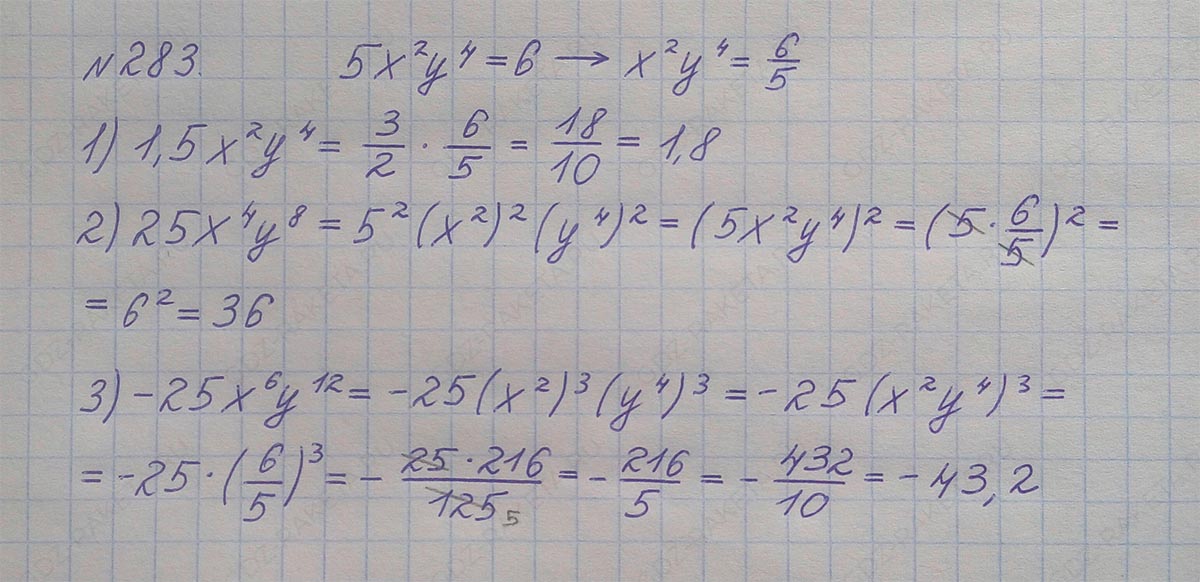 №283. 5x²y⁴ = 6 → x²y⁴ = 6/5
1) 1,5x²y⁴ = 3/2 · 6/5 = 18/10 = 1,8
2) 25x⁴y⁸ = 5²(x²)²(y⁴)² = (5x²y⁴)² = (5 · 6/5)² =
= 6² = 36
3) -25x⁶y¹² = -25(x²)³(y⁴)³ = -25(x²y⁴)³ =
= -25 · (6/5)³ = - 25 · 216/125 5 = - 216/5 = - 432/10 = - 43,2